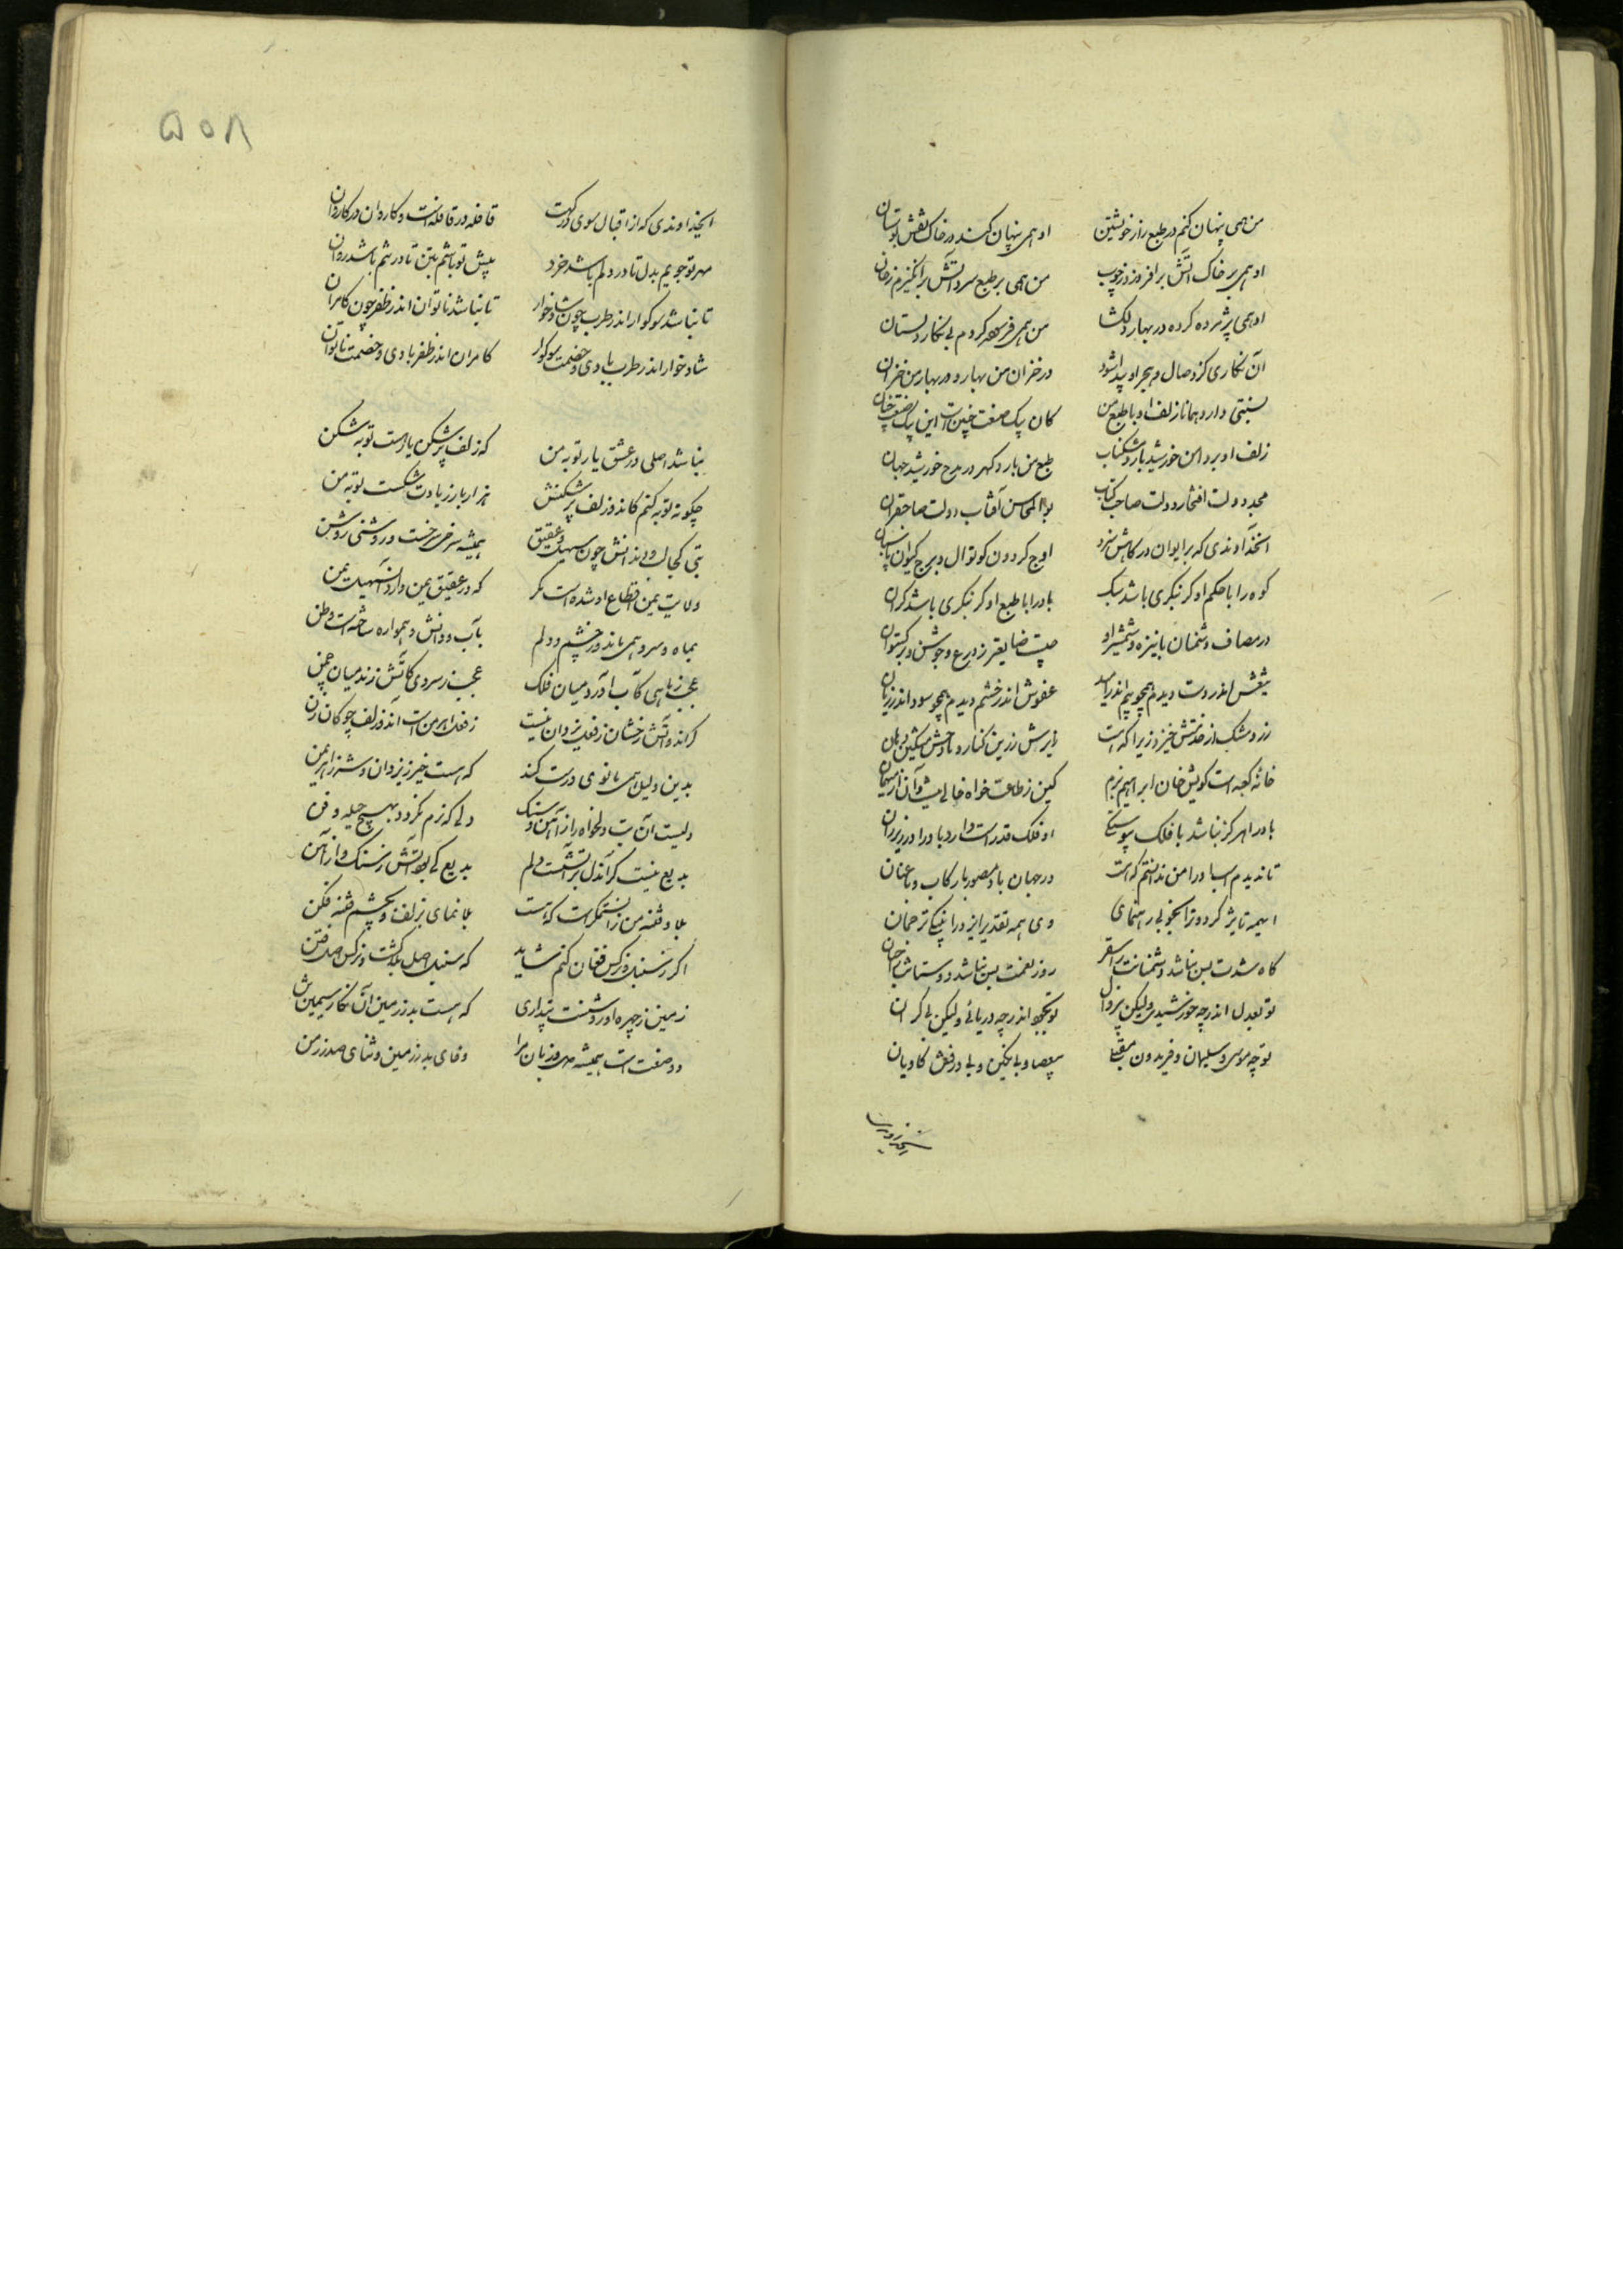 من همی پنهان کنم در طبع راز خویشتن او همی پنهان کند در خاک نقش بوستان
او همی بر خاک آتش برافروزد ز چوب من همی بر طبع سرد آتش برانگیزم ز خان
او همی پژمرده کرده در بهار دلگشا من همی فرسوده کردم بی نگار دلستان
آن نگاری کز وصال و هجر او پیدا شود در خزان من بهار و در بهار من خزان
نسبتی دارد همانا زلف او با طبع من کان یک صنعت چنین است این یک صنعت چنان
زلف او بر دامن خورشید بارد مشکناب طبع من بارد کهر در مدح خورشید جهان
مجد دولت افتخار دولت صاحب کتاب بوالمحاسن آفتاب دولت صاحبقران
آنخداوندی که بر ایوان درکاهش سزد اوج کردون کوتوال و برج کیوان پاسبان
کوه را با حکم او کر بنکری باشد سبک باد را با طبع او کر بنکری باشد کران
در مصاف دشمنان با نیزه و شمشیر او چیست ضایعتر ز درع و جوشن و برکستوان
تیغش اندر دست دیدم همچو بیم اندر امید عفوش اندر خشم دیدم همچو سود اندر زیان
زر و مشک از خدمتش خیزد زیرا که هست زایرش زرین کنار و مادحش مشکین دهان
خانه کعبه است کویی خان ابراهیم بزم کین ز طاعت خواه خالی نیست و آن از میهمان
باد را هرکز نباشد با فلک پیوستکی او فلک قدر است و دارد باد را در زیر ران
تا ندیدم اسب او را من ندانستم که هست در جهان باد مصور با رکاب و با عنان
ای همه تأثیر کردون را بنیکویی رهنمای وی همه تقدیر ایزد را بنیکی ترجمان
کاه شدت بس نباشد دشمنانت را سقر روز نعمت بس نباشد دوستانت را جنان
تو بعدل اندر چه خورشیدی ولیکن بی زوال تو بجود اندر چه دریائی ولیکن بی کران
تو چه موسی و سلیمان و فریدون مقبلی بی عصا و بی نکین و بی درفش کاویان
۵۰۸
ایخداوندی که از اقبال سوی درکهت قافله در قافله است و کاروان در کاروان
مهر تو جویم بدل تا در دلم باشد خرد پیش تو باشم بتن تا در تنم باشد روان
تا نباشد سوکوار اندر طرب چون شادخوار تا نباشد ناتوان اندر ظفر چون کامران
شادخوار اندر طرب بادی و خصمت سوکوار کامران اندر ظفر بادی و خصمت ناتوان
نباشد اصلی در عشق یار توبه من که زلف پرشکن یار هست توبه شکن
چکونه توبه کنم کاندر زلف پرشکنش هزار بار زیادت شکست توبه من
بتی کجا لب و دندانش چون سهیل و عقیق همیشه سرخ سرخست و روشنی روشن
ولایت یمن اقطاع او شده است مکر که در عقیق یمن دارد آن سهیل یمن
بماه و سرو همی ماند و در چشم و دلم بآب و آتش همواره ساخته است وطن
عجب ز ماهی کآب آرد میان فلک عجب ز سروی کآتش زند میان چمن
کر اندر آتش رخشان ز فعل یزدان نیست ز فعل اهرمن است آن دو زلف چوکان زن
بدین دلیل همی مانوی درست کند که هست خیر ز یزدان و شر ز اهریمن
دلیست آن بت دلخواه را ز آهن و سنک دلی که نرم نکردد بهیچ حیله و فن
بدیع نیست کر آن دل بر آتشست دلم بدیع کی بود آتش ز سنک و از آهن
بلا و فتنه من زان ستمکر است که هست بلانمای بزلف و بچشم فتنه فکن
اکر ز سنبل و نرکس فغان کنم شاید که سنبل اصل بلا کشت و نرکس اصل فتن
زمین ز چهره او روشنست پنداری که هست بدر زمین آن نکار سیمین تن
دو صفت است همیشه دل و زبان مرا وفای بدر زمین و ثنای صدر زمن